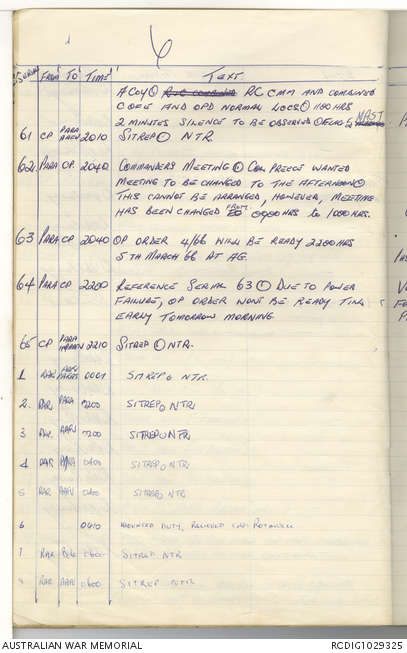 6
SERIAL FROM TO TIME TEXT
A COY RC CMM AND COMBINED
COFE AND OPD NORMAL LOCS 1130 HRS
2 MINUTES SILENCE TO BE OBSERVED MAST
61 CP PARA AAFV 2010 SITREP NTR
62 PARA OP. 2040 COMMANDERS MEETING PREECE WANTED
MEETING TO BE CHANGED TO THE AFTERNOON
THIS CANNOT BE ARRANGED, HOWEVER, MEETING
HAS BEEN CHANGED FROM 0900 HRS to 1000 HRS.
63 PARA CP 2040 OP ORDER 4/66 WILL BE READY 2200 HRS
5TH MARCH 66 AT AG.
64 PARA CP 2200 REFERENCE SERIAL 63 DUE TO POWER
FAILURE, OP ORDER WONT BE READY TILL
EARLY TOMORROW MORNING
65 CP PARA 2210 SITREP NTR.
1 RAR 0001 SITREP NTR.
2 RAR PARA 0200 SITREP NTR
3 RAR AAFV 0200 SITREP NTR
4 RAR PARA 0400 SITREP NTR
5 RAR AAFV 0400 SITREP NTR
6 0410 MOUNTED DUTY, RELIEVED
7 RAR 0600 SITREP NTR
8 RAR AAFV 0600 SITREP NTR
AUSTRALIAN WAR MEMORIAL RCDIG1029325